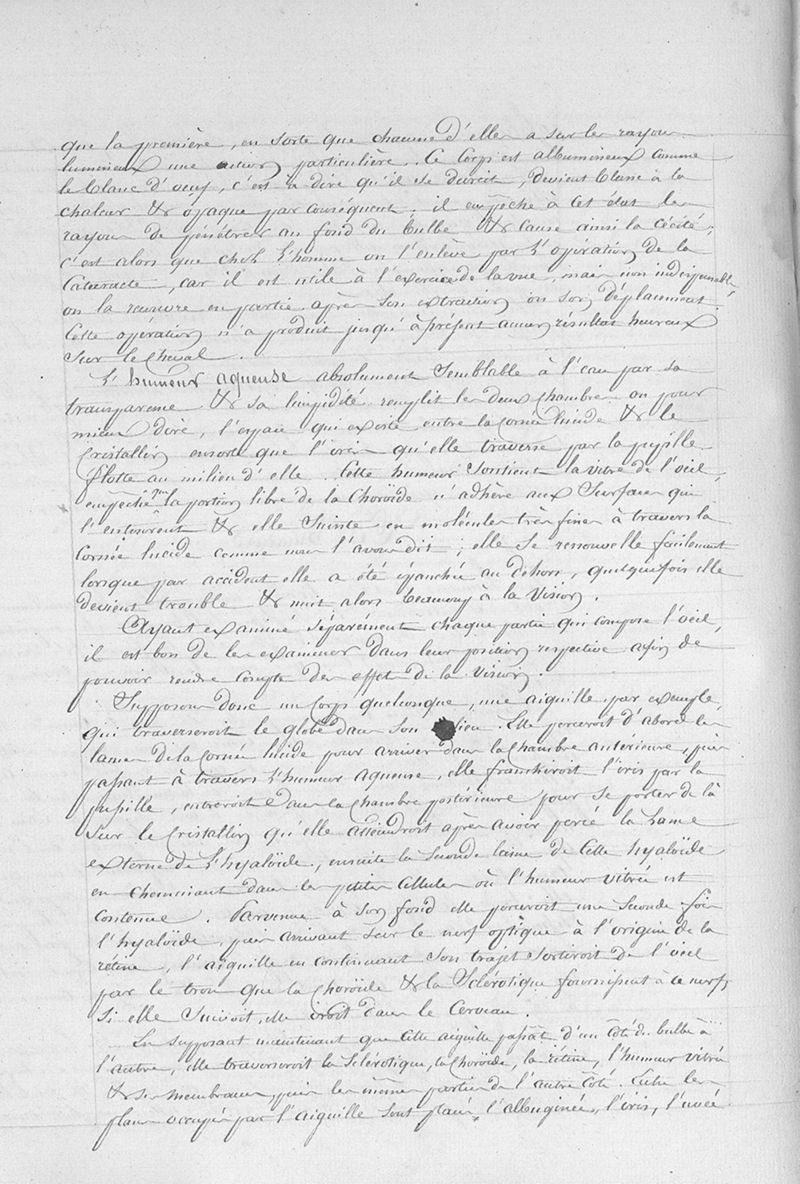 que la première, en sorte que chacune d'elles a sur les rayons
lumineux une action particulière. Ce Corps est albumineux comme
le blanc d'oeuf, c'est à dire qu'il se durcit, devient blanc à la
chaleur & opaque par conséquent. il empêche à cet état les
rayons de pénétrer au fond du bulbe & cause ainsi la cécité;
c'est alors que chez l'homme on l'enlève par l'opération de la
Cataracte, car il est utile à l'exercice de la vue, mais non indispensable
on la recouvre en partie après son extraction ou son déplacement.
Cette opération n'a produit jusqu'à présent aucun résultat heureux
sur le Cheval.
L'humeur aqueuse absolument semblable à l'eau par sa
transparence & sa limpidité remplit les deux chambres ou pour
mieux dire, l'espace qui existe entre la Cornée lucide & le
Cristallin ensorte que l'iris qu'elle traverse par la pupille
flotte au milieu d'elle. Cette humeur soutient la vitre de l'oeil,
empêche que la portion libre de la Choroïde n'adhère aux Surfaces qui
l'entourent & elle Suinte en molécules très fines à travers la
Cornée lucide comme nous l'avons dit; elle se renouvelle facilement
lorsque par accident elle a été épanchée au dehors, quelquefois elle
devient trouble & nuit alors beaucoup à la Vision.
Ayant examiné séparément chaque partie qui compose l'oeil,
il est bon de les examiner dans leur position respective afin de
pouvoir rendre compte des effets de la Vision.
Supposons donc un Corps quelconque, une aiguille par exemple,
qui traverseroit le globe dans son milieu. Elle perceroit d'abord les
lames de la Cornée lucide pour arriver dans la Chambre antérieure, puis
passant à travers l'humeur aqueuse, elle franchiroit l'iris par la
pupille, entreroit dans la Chambre postérieure pour se porter de là
sur le Cristallin qu'elle atteindroit après avoir percé la Lame
externe de l'hyaloïde, ensuite la seconde lame de cette hyaloïde
en cheminant dans les petites cellules où l'humeur vitrée est
contenue. Parvenue à son fond elle perceroit une seconde fois
l'hyaloïde, puis arrivant sur le nerf optique à l'origine de la
rétine, l'aiguille en continuant son trajet sortiroit de l'oeil
par le trou que la Choroïde & la Sclérotique fournissent à ce nerf,
si elle suivoit, elle iroit dans le Cerveau.
En supposant maintenant que cette aiguille passât d'un côté du bulbe à
l'autre, elle traverseroit la Sclérotique, la Choroïde, la rétine, l'humeur vitrée
& ses membranes, puis les mêmes parties de l'autre côté. Entre les
plans occupés par l'aiguille sont placés l'albuginée, l'iris, l'uvée